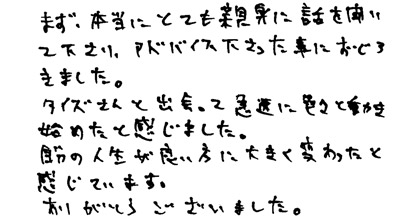 まず、本当にとても親身に話を聞い
て下さり、アドバイス下さった事におどろ
きました。
タイズさんと出会って急速に色々と動き
始めたと感じました。
自分の人生が良い方に大きく変わったと
感じています。
ありがとうございました。